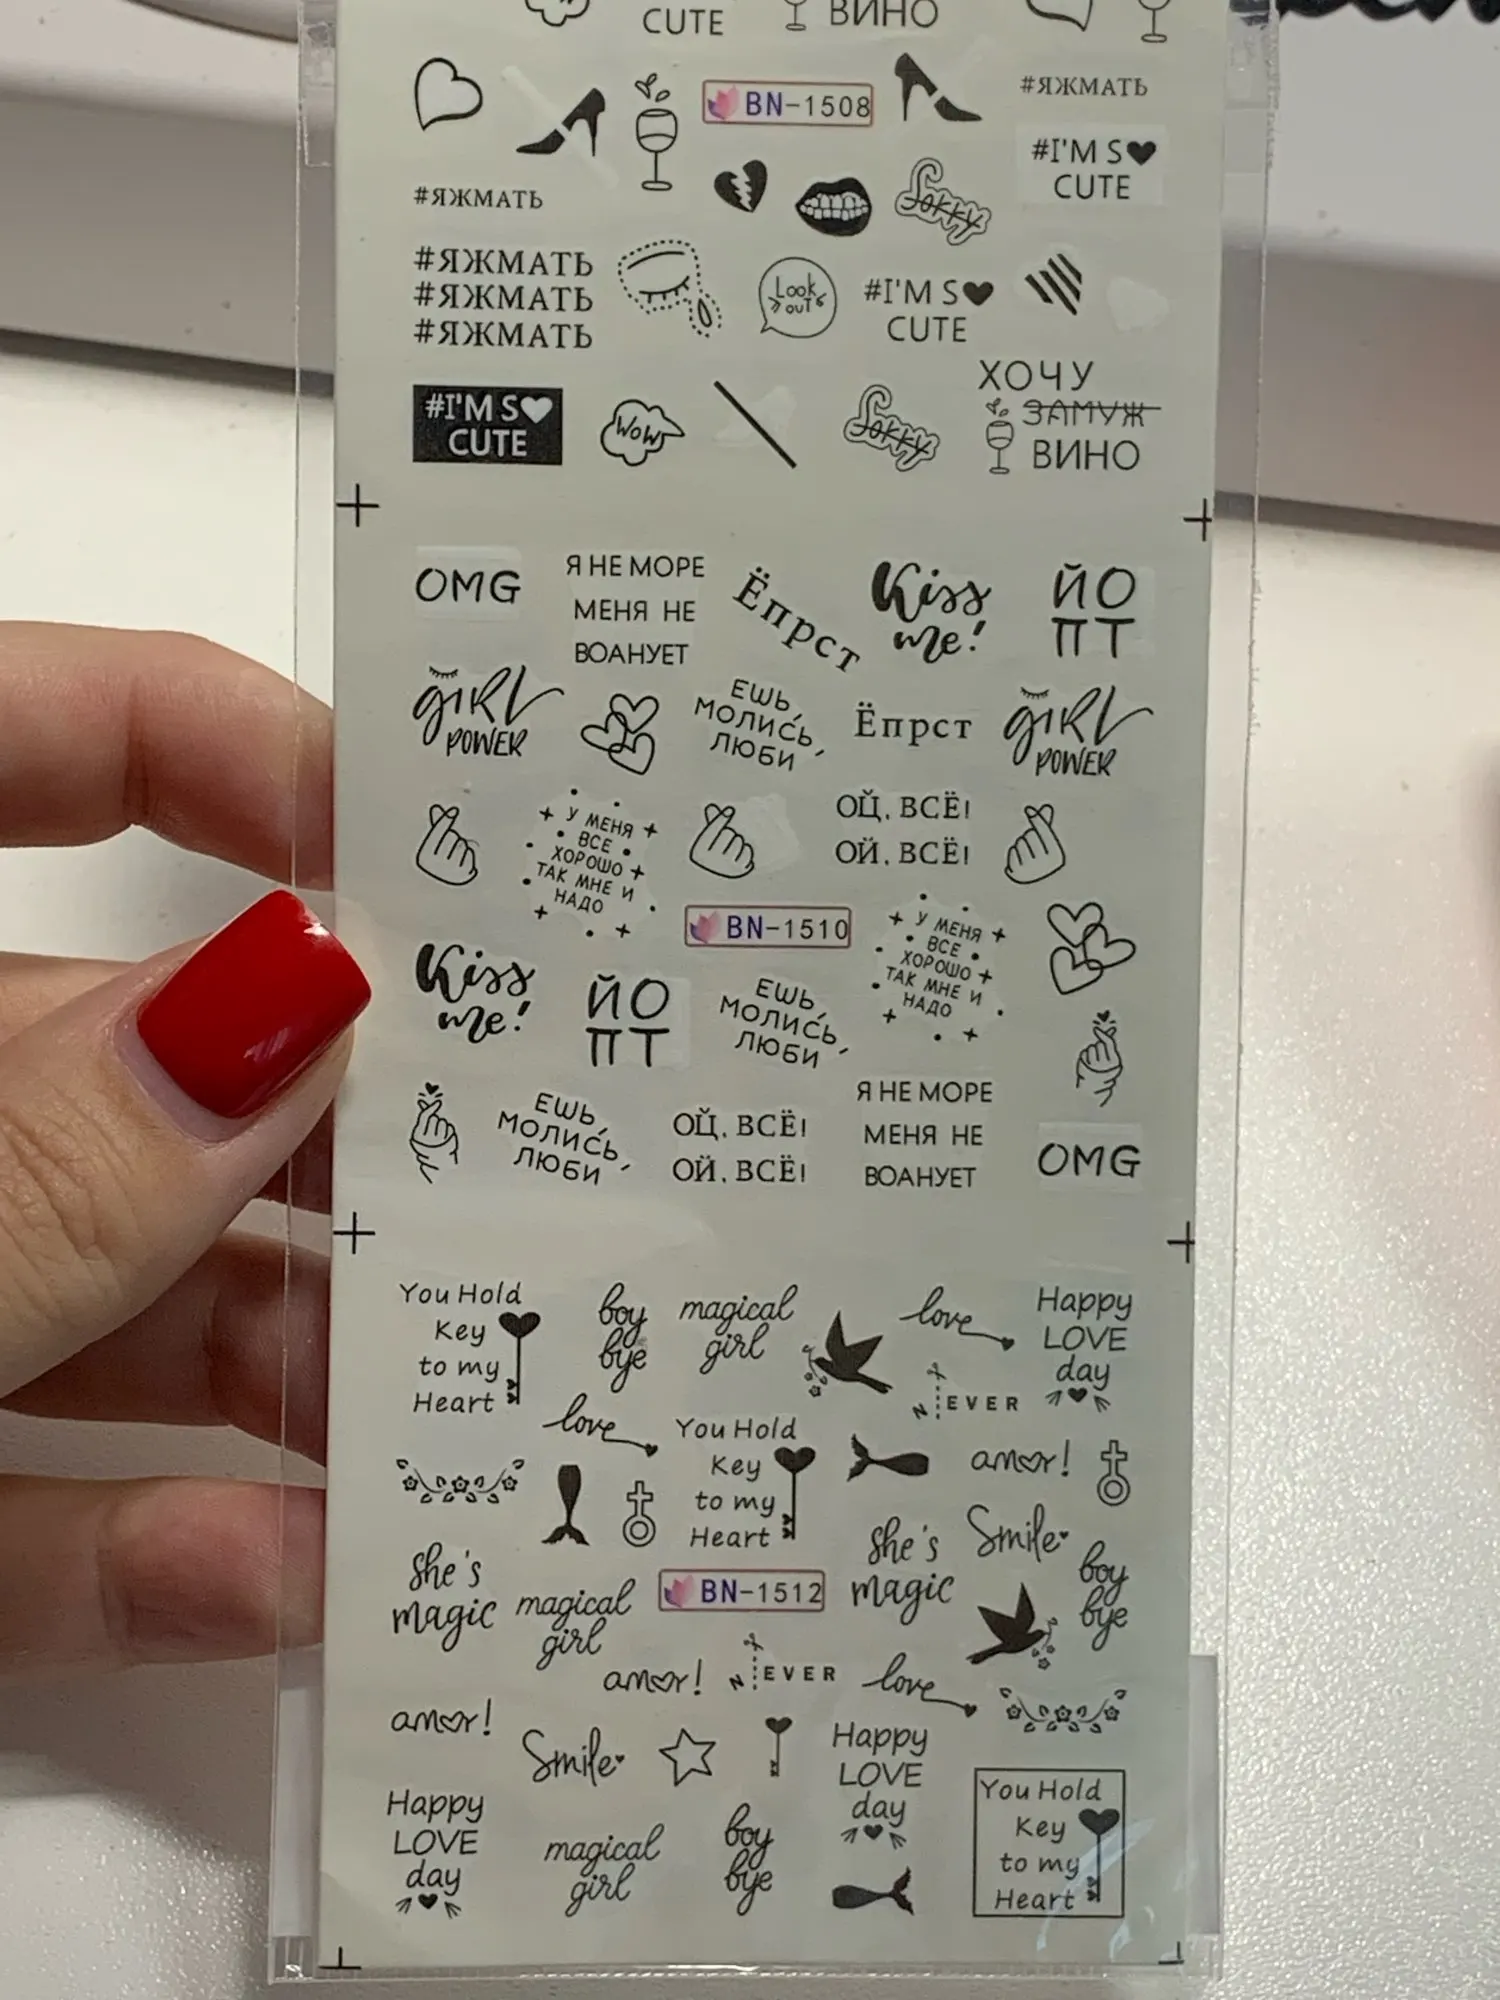 CUTE
ВИНО
BN-1508
#ЯЖМАТЬ
#I'M S♥
CUTE
#ЯЖМАТЬ
Sorry
#ЯЖМАТЬ
#ЯЖМАТЬ
#ЯЖМАТЬ
Look
out
#I'M S♥
CUTE
#I'M S♥
CUTE
WOW
Sorry
ХОЧУ
ЗАМУЖ
ВИНО
OMG
Я НЕ МОРЕ
МЕНЯ НЕ
ВОАНУЕТ
Ёпрст
Kiss
me!
ЙО
ПТ
GIRL
POWER
ЕШЬ,
МОЛИСЬ,
ЛЮБИ
Ёпрст
GIRL
POWER
У МЕНЯ
ВСЕ
ХОРОШО
ТАК МНЕ И
НАДО
ОЙ, ВСЁ!
ОЙ, ВСЁ!
BN-1510
У МЕНЯ
ВСЕ
ХОРОШО
ТАК МНЕ И
НАДО
Kiss
me!
ЙО
ПТ
ЕШЬ,
МОЛИСЬ,
ЛЮБИ
ЕШЬ,
МОЛИСЬ,
ЛЮБИ
ОЙ, ВСЁ!
ОЙ, ВСЁ!
Я НЕ МОРЕ
МЕНЯ НЕ
ВОАНУЕТ
OMG
You Hold
Key
to my
Heart
boy
bye
magical
girl
love
Happy
LOVE
day
NEVER
love
You Hold
Key
to my
Heart
amor!
she's
magic
magical
girl
BN-1512
she's
magic
Smile
boy
bye
amor!
NEVER
love
amor!
Smile
Happy
LOVE
day
Happy
LOVE
day
magical
girl
boy
bye
You Hold
Key
to my
Heart